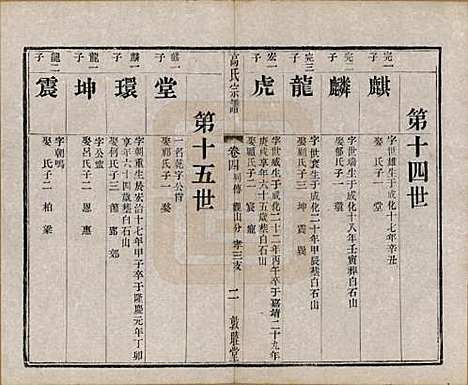 第十四世
完一子
麒
字世雄生于成化十七年辛丑
娶 氏子一 堂
完二子
麟
字世瑞生于成化十八年壬寅葬白石山
娶 氏子一 環
完三子
龍
字世袞生于成化二十年甲辰葬白石山
娶顧氏子二 坤 震
宏一子
虎
字世威生于成化二十二年丙午卒于嘉靖二十九年
庚戌享年六十五歲葬白石山
娶顧氏子二 宸 寵
高氏宗譜
卷四
觀山分 孝三支
二
敦睦堂
第十五世
麒一子
堂
一名 字公實
娶郭氏子一
麟一子
環
字朝重生於宏治十七年甲子卒于隆慶元年丁卯
享年六十四歲葬白石山
娶何氏子三
龍一子
坤
字公
娶呂氏子二 恩 惠
龍二子
震
字朝鳴
娶 氏子二 柏 梁